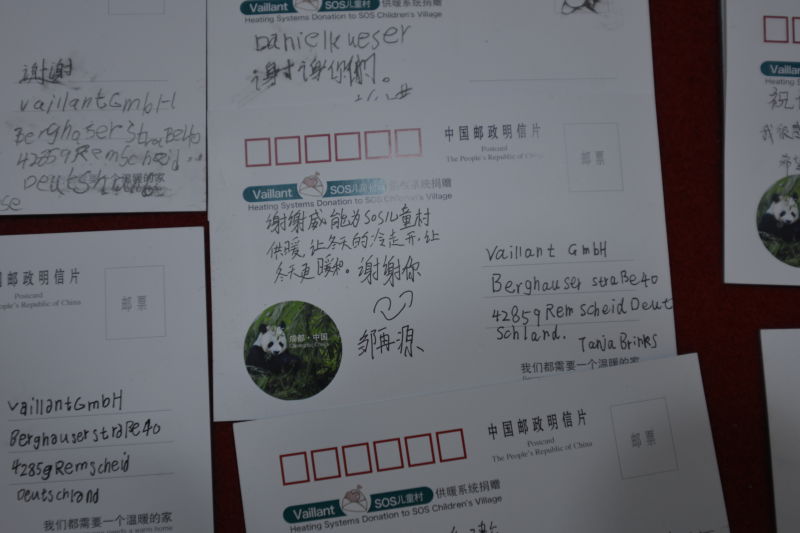 谢谢
Vaillant GmbH
Berghaser Straße 40
42859 Remscheid
Vaillant SOS儿童村 供暖系统捐赠
Heating Systems Donation to SOS Children's Village
Daniel kueser
谢谢你们。
中国邮政明信片
Postcard
The People's Republic of China
邮票
Vaillant SOS儿童村 供暖系统捐赠
Heating Systems Donation to SOS Children's Village
谢谢威能为SOS儿童村
供暖,让冬天的冷走开,让
冬天更暖和。谢谢你
邹再源
成都·中国
Vaillant GmbH
Berghauser straße 40
42859 Remscheid Deut
schland.
Tanja Brinks
我们都需要一个温暖的家
国邮政明信片
Postcard
People's Republic of China
邮票
Vaillant GmbH
Berghauser straße 40
42859 Remscheid
Deutschland
我们都需要一个温暖的家
中国邮政明信片
Postcard
The People's Republic of China
邮票
Vaillant SOS儿童村 供暖系统捐赠
Heating Systems Donation to SOS Children's Village
Vaillant
Heating Syst
祝
我很